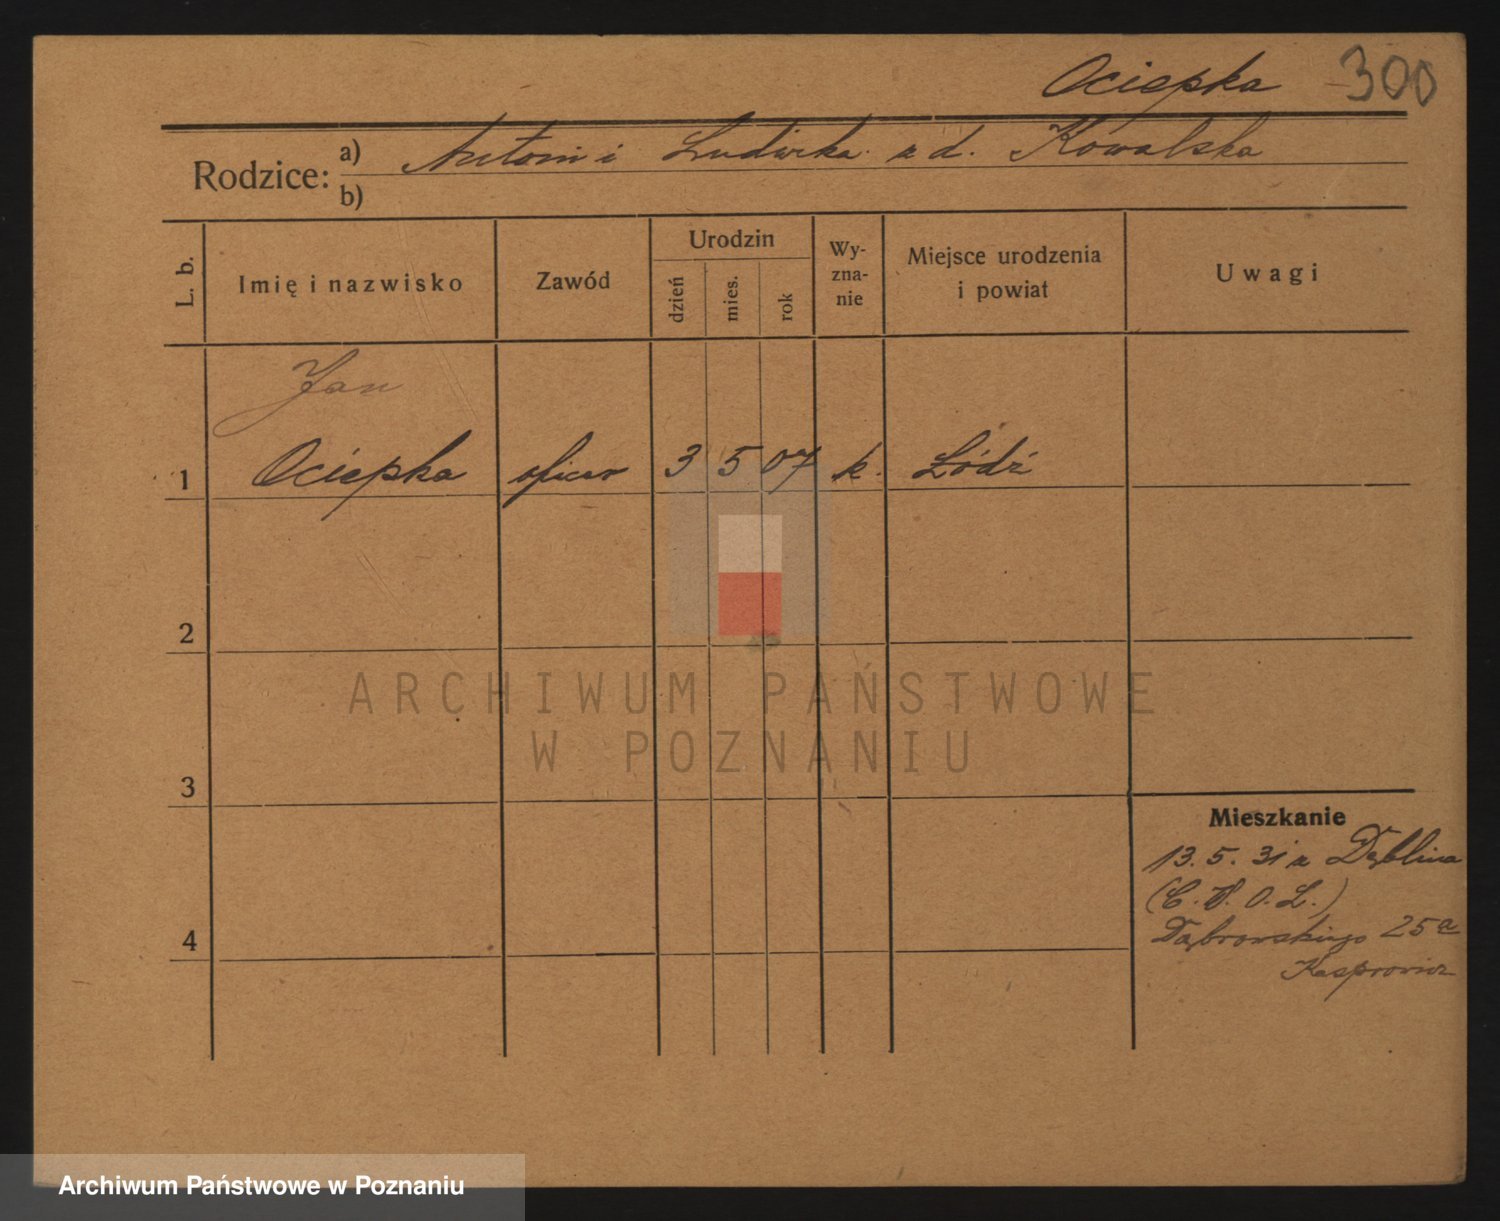 Ociepka 300
Rodzice: a) Antoni i Ludwika z d. Kowalska
b)
L. b. Imię i nazwisko Zawód Urodzin dzień mies. rok Wy-zna-nie Miejsce urodzenia i powiat Uwagi
Jan
1 Ociepka oficer 3 5 07 k. Łódź
2
ARCHIWUM PAŃSTWOWE
W POZNANIU
3
Mieszkanie
13. 5. 31 z Dęblina
(C. W. O. L.)
4 Dąbrowskiego 25a
Kasprowicz
Archiwum Państwowe w Poznaniu